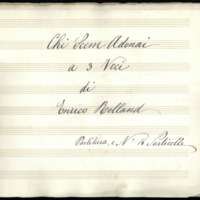 Chi Scem Adonai
a 3 Voci
di
Enrico Rolland
Partitura, e N. Particelle